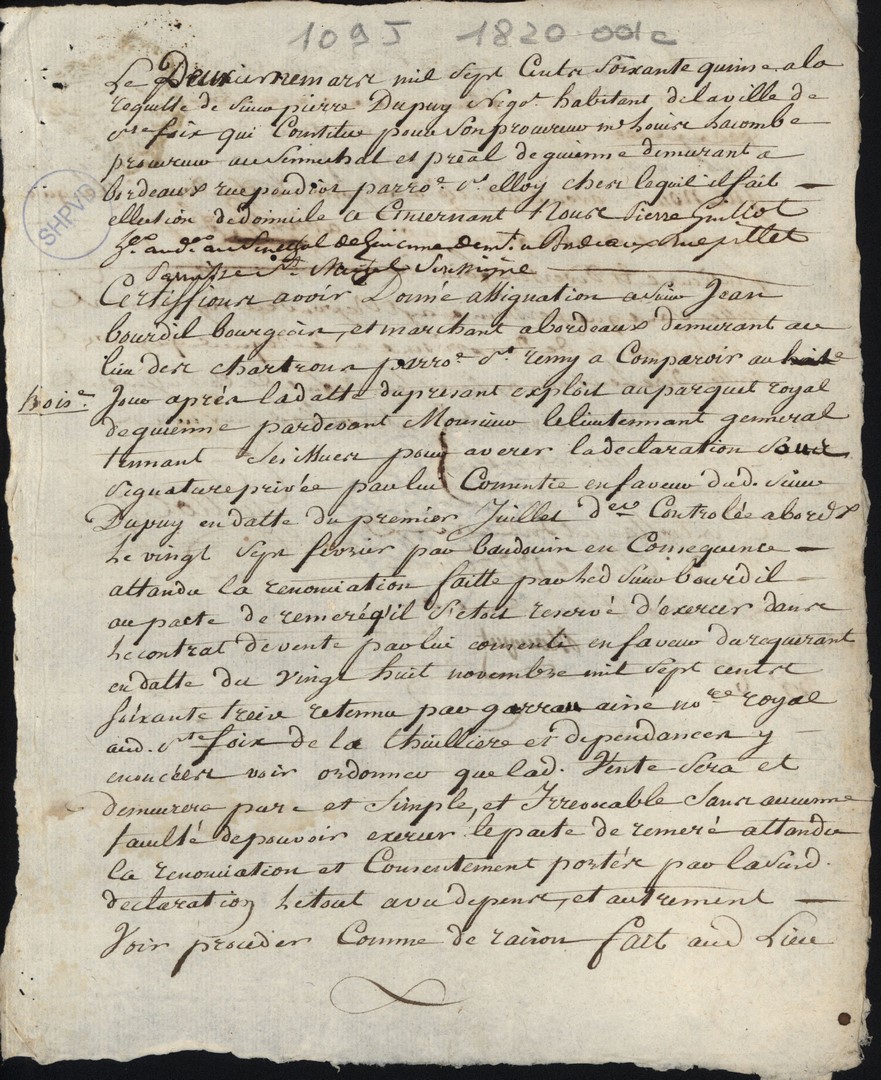 1095 1820 001c
Le Deuxiememars mil sept Cents soixante quinse ala
requette de sieur pierre Dupuy Negot. habitant delaville de
ste foix qui Constitue pour son procureur me Louise Lacombe
procureur au senechal et préal deguienne demurant a
bordeaux rue poudiot parroe. st. elloy ches lequel il fait —
ellection dedomicile a Concernant Nous Pierre Guillot
au de Guienne demt. a Bordeaux rue pillet
Parroisse st. Michel Soussigné
Certiffions avoir Donné assignation a sieur Jean
bourdil bourgeois, et marchant abordeaux demurant au
lieu des chartrons parroe. st. remy a Comparoir au huite
troise. Jour aprés ladatte dupresant exploit auparquet royal
deguienne pardevant Monsieur lelieutennant genneral
tennant ses pour averer ladeclaration sous
signature privée par lui Consentie enfaveur dud. sieur
Dupuy en datte du premier Juillet der Controlée abordx
Le vingt sept fevrier par baudouin en Consequence —
attandu la renonciation faitte par led sieur bourdil
au pacte de remeré q'il s'etois reservé d'exercer dans
le contrat devente par lui consenti enfaveur durequerant
en datte du vingt huit novembre mil sept cents
soixante treise retennu par garrau ainé nore royal
aud. ste foix de la thuilliere et dependances y
enoncées voir ordonner que lad. Vente sera et
demeurera pure et simple, et Irrevocable sans aucunne
faculté depouvoir exercer le pacte de remeré attandu
la renonciation et Consentement portés par lasusd.
declaration letout avec depens, et autrement —
Voir proceder Comme de raison fait aud Lieu
SHPVD